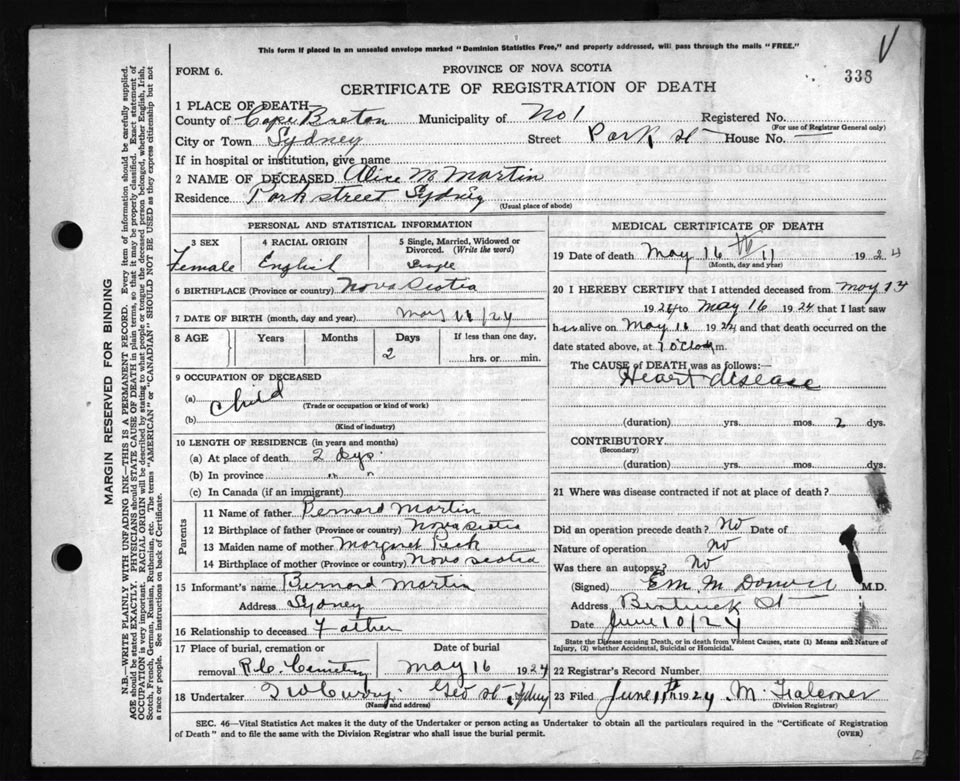 This form if placed in an unsealed envelope marked "Dominion Statistics Free," and properly addressed, will pass through the mails "FREE."
FORM 6.
PROVINCE OF NOVA SCOTIA
338
CERTIFICATE OF REGISTRATION OF DEATH
1 PLACE OF DEATH
County of Cape Breton Municipality of No 1 Registered No.
(For use of Registrar General only)
City or Town Sydney Street Park St House No. —
If in hospital or institution, give name
2 NAME OF DECEASED Alice M Martin
Residence Park street Sydney
(Usual place of abode)
PERSONAL AND STATISTICAL INFORMATION
3 SEX 4 RACIAL ORIGIN 5 Single, Married, Widowed or Divorced. (Write the word)
Female English Single
6 BIRTHPLACE (Province or country) Nova Scotia
7 DATE OF BIRTH (month, day and year) May /24
8 AGE Years Months Days If less than one day,
2 hrs. or min.
9 OCCUPATION OF DECEASED
(a) Child
(Trade or occupation or kind of work)
(b)
(Kind of industry)
10 LENGTH OF RESIDENCE (in years and months)
(a) At place of death 2 Dys.
(b) In province " "
(c) In Canada (if an immigrant)
Parents
11 Name of father Bernard Martin
12 Birthplace of father (Province or country) Nova Scotia
13 Maiden name of mother Margaret
14 Birthplace of mother (Province or country) Nova Scotia
15 Informant's name Bernard Martin
Address Sydney
16 Relationship to deceased Father
17 Place of burial, cremation or removal R.C. Cemetery Date of burial May 16 1924
18 Undertaker Geo St. Sydney
(Name and address)
MEDICAL CERTIFICATE OF DEATH
19 Date of death May 16th 11 1924
(Month, day and year)
20 I HEREBY CERTIFY that I attended deceased from May
1924 to May 16 1924 that I last saw
h alive on May 1924 and that death occurred on the
date stated above, at O'Clock m.
The CAUSE of DEATH was as follows:—
Heart disease
(duration) yrs. mos. 2 dys.
CONTRIBUTORY
(Secondary)
(duration) yrs. mos. dys.
21 Where was disease contracted if not at place of death?
Did an operation precede death? No Date of
Nature of operation no
Was there an autopsy? No
(Signed) E.M. M.D.
Address St
Date June 10/24
State the Disease causing Death, or in death from Violent Causes, state (1) Means and Nature of Injury, (2) whether Accidental, Suicidal or Homicidal.
22 Registrar's Record Number
23 Filed June 11th 1924 M. Falconer
(Division Registrar)
SEC. 46—Vital Statistics Act makes it the duty of the Undertaker or person acting as Undertaker to obtain all the particulars required in the "Certificate of Registration
of Death" and to file the same with the Division Registrar who shall issue the burial permit. (OVER)
MARGIN RESERVED FOR BINDING
N.B—WRITE PLAINLY WITH UNFADING INK—THIS IS A PERMANENT RECORD. Every item of information should be carefully supplied.
AGE should be stated EXACTLY. PHYSICIANS should STATE CAUSE OF DEATH in plain terms, so that it may be properly classified. Exact statement of
OCCUPATION is very important. RACIAL ORIGIN will be described by stating to what people or tongue the deceased person belonged, whether English, Irish,
Scotch, French, German, Russian, Ruthenian, etc. The terms "AMERICAN" or "CANADIAN" SHOULD NOT BE USED as they express citizenship but not
a race or people. See instructions on back of Certificate.